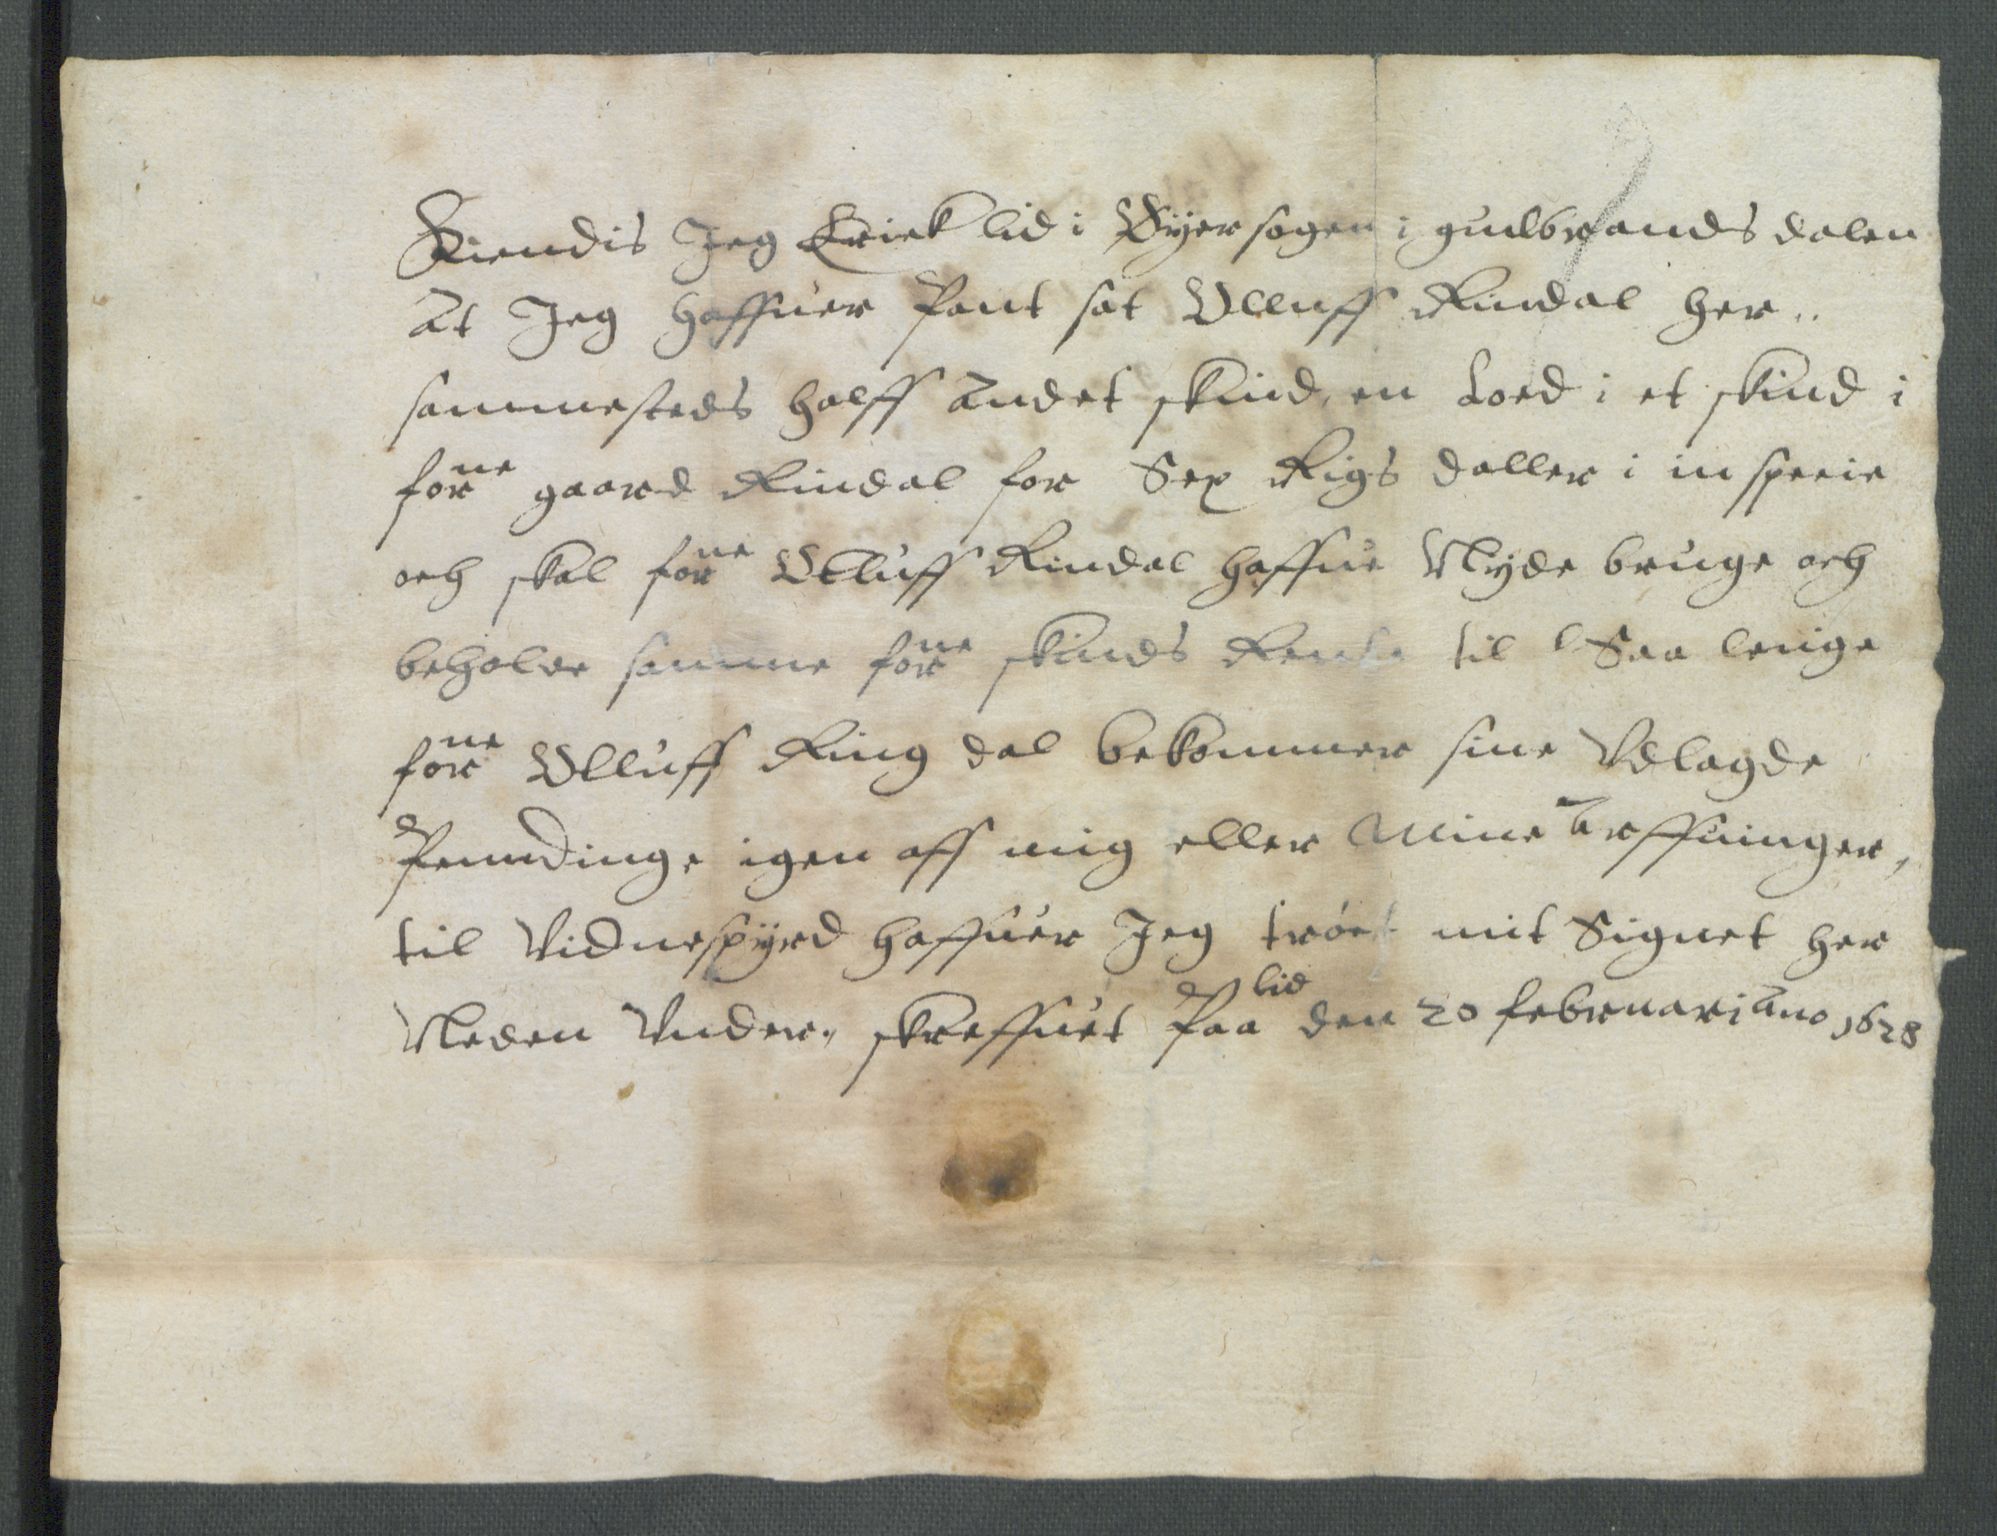 Kiendis Jeg Eriek lid i Øÿer sogen i gulbrands dalen
At Jeg haffuer Pant sat Olluff Rindal her..
sammesteds halff andet skind, en Loed i et skind i
forne gaard Rindal for Sex Rigs daller i in specie
och skal forne Olluff Rindal haffue Nÿde bruge och
beholde samme forne skinds Rente til Saa lenge
forne Olluff Ring dal bekommer sine Vdlagde
Penndinge igen aff mig eller Mine Arffuinger,
til Vidnesbÿrd haffuer Jeg tröct mit Signet her
Neden Vnder, skreffuet Paa lid den 20 februarj Ano 1628